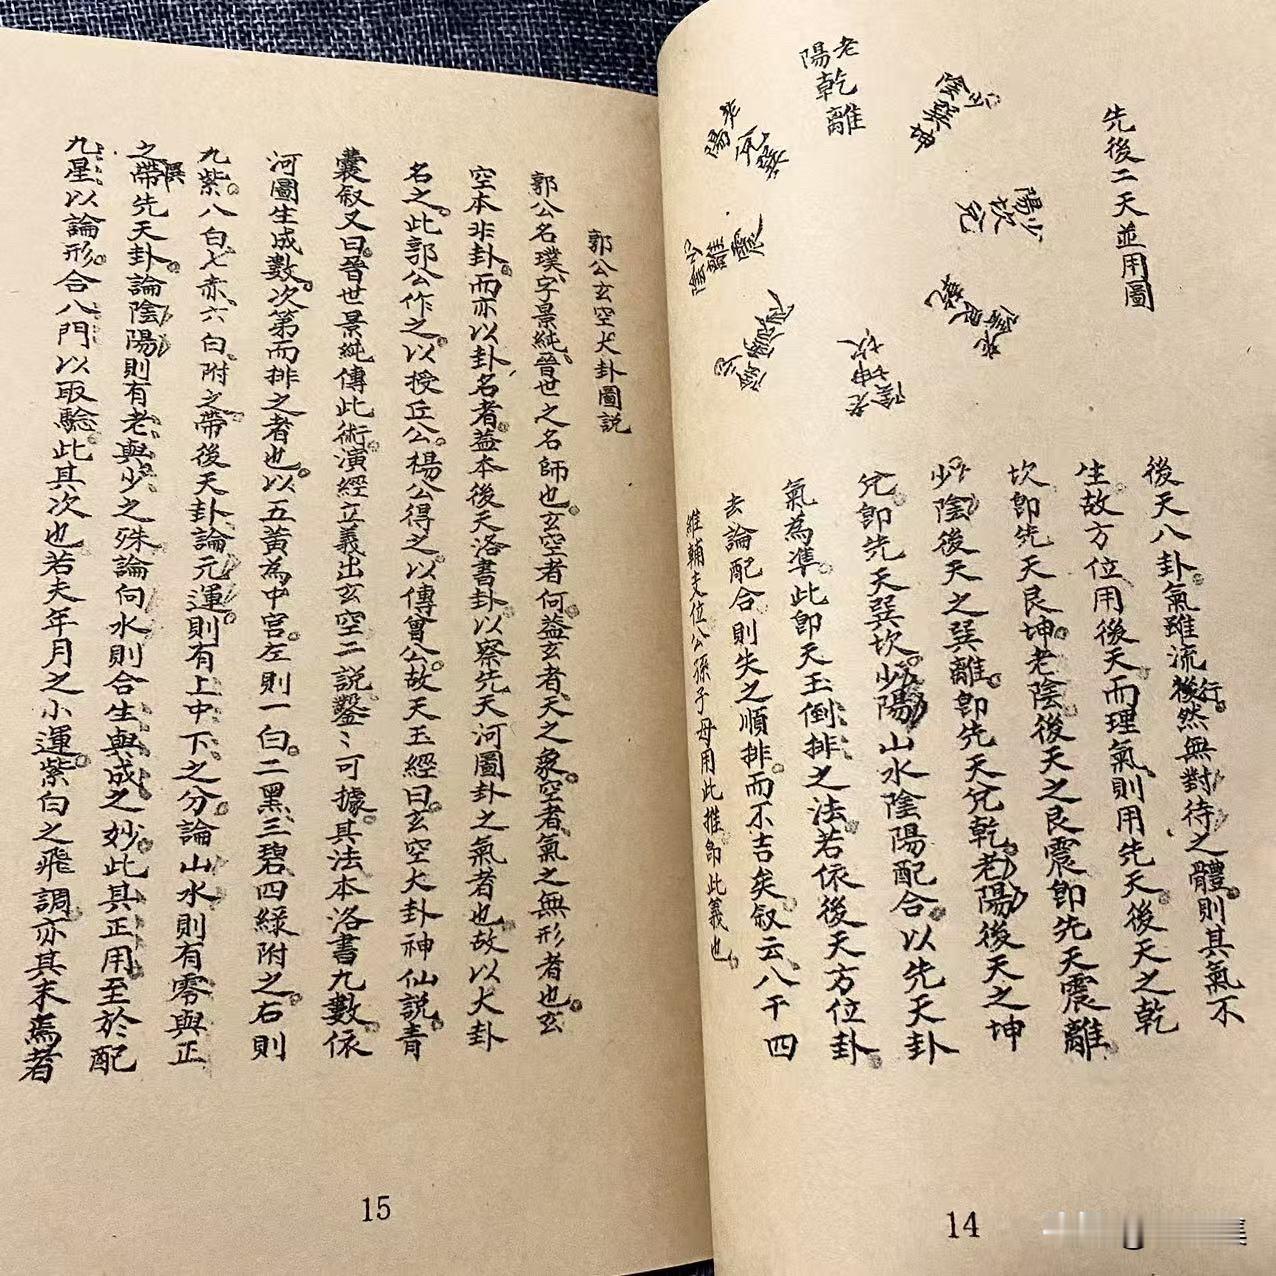 先後二天並用圖
老陽乾離
少陰巽坤
少陽坎兌
老陰艮乾
老陰坤坎
少陰震艮
少陰離震
老陽兌巽
後天八卦氣雖流行後然無對待之體則其氣不
生故方位用後天而理氣則用先天後天之乾
坎即先天艮坤老陰後天之艮震即先天震離
少陰後天之巽離即先天兌乾老陽後天之坤
兌即先天巽坎少陽山水陰陽配合以先天卦
氣為準此即天玉倒排之法若依後天方位卦
去論配合則失之順排而不吉矣叙云八干四
維輔支位公孫子母用此推即此義也
郭公玄空大卦圖説
郭公名璞字景純晉世之名師也玄空者何蓋玄者天之象空者氣之無形者也玄
空本非卦而亦以卦名者蓋本後天洛書卦以察先天河圖卦之氣者也故以大卦
名之此郭公作之以授丘公楊公得之以傳曾公故天玉經曰玄空大卦神仙説青
囊叙又曰晉世景純傳此術演經立義出玄空二説鑿〻可據其法本洛書九數依
河圖生成數次第而排之者也以五黃為中宮左則一白二黑三碧四綠附之右則
九紫八白七赤六白附之帶後天卦論元運則有上中下之分論山水則有零與正
之撰帶先天卦論陰陽則有老與少之殊論向水則合生與成之妙此其正用至於配
九星以論形合八門以取驗此其次也若夫年月之小運紫白之飛調亦其末焉者
15
14